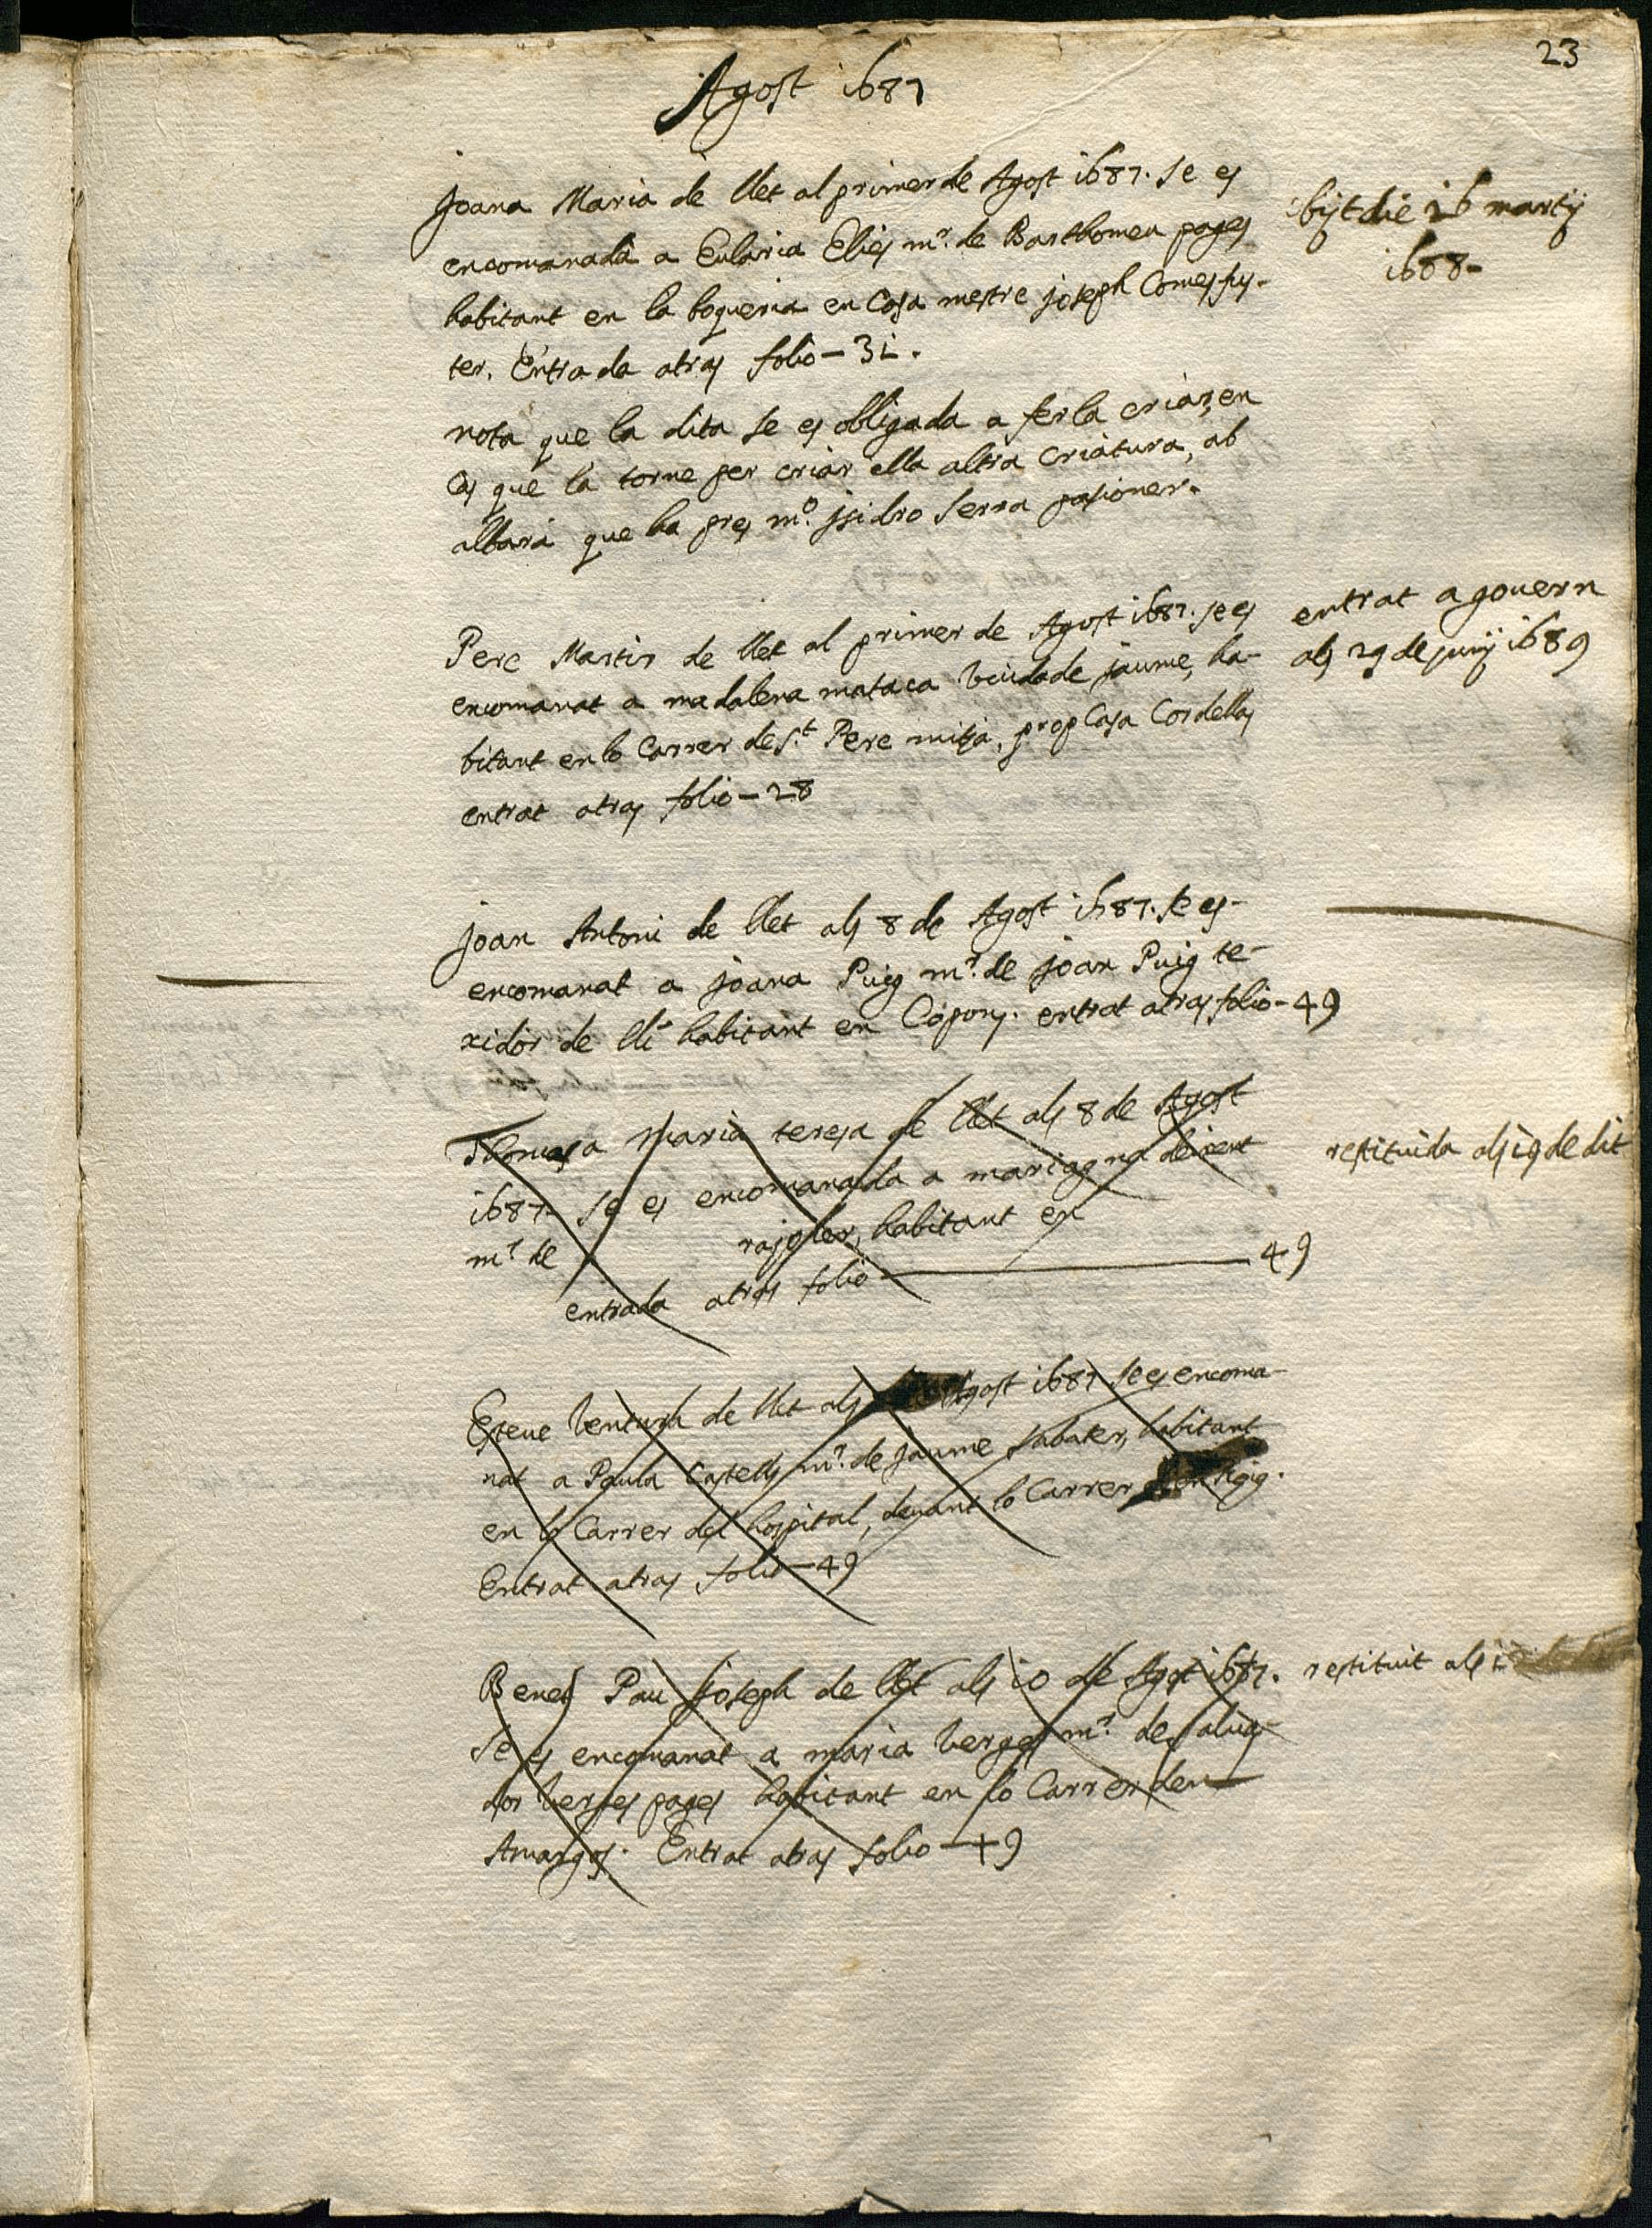 23
Agost 1687
Joana Maria de llet al primer de Agost 1687. se es
encomanada a Eularia Elies mr. de Barthomeu pages
habitant en la boqueria en Casa mestre joseph Comes fus-
ter. Entrada atras folio - 31.
obijt die 26 martij
1688-
nota que la dita se es obligada a ferla criar, en
cas que la torne per criar ella altra criatura, ab
albara que ha pres mo. jsidro Serra pasioner.
Pere Martir de llet al primer de Agost 1687. se es
encomanat a madalena mataca viuda de jaume, ha-
bitant en lo Carrer de St. Pere mitja, prop Casa Cordelles
entrat atras folio - 28
entrat a govern
als 29 de juny 1689
Joan Antoni de llet als 8 de Agost 1687. se es-
encomanat a joana Puig mr. de joan Puig te-
xidor de lli habitant en Copons. entrat atras folio - 49
Thomasa Maria teresa de llet als 8 de Agost
1687. se es encomanada a mariagna
mr. de rajoler, habitant en
entrada atras folio 49
restituida als 19 de dit
Esteve Ventura de llet als Agost 1687 se es encoma-
nat a Paula Castells mr. de jaume sabater, habitant
en lo Carrer del hospital, devant lo Carrer den Roig.
Entrat atras folio - 49
Benet Pau joseph de llet als 10 de Agost 1687.
se es encomanat a maria Verges mr. de salva-
dor Verges pages habitant en lo Carrer den
Amargos. Entrat atras folio - 49
restituit als